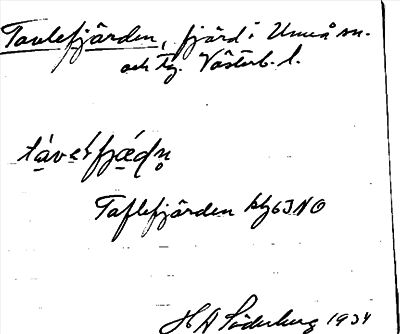 Tavlefjärden, fjärd i Umeå sn.
och tg. Västerb. l.
Taflefjärden kbl 63 NO
H A Söderberg 1934